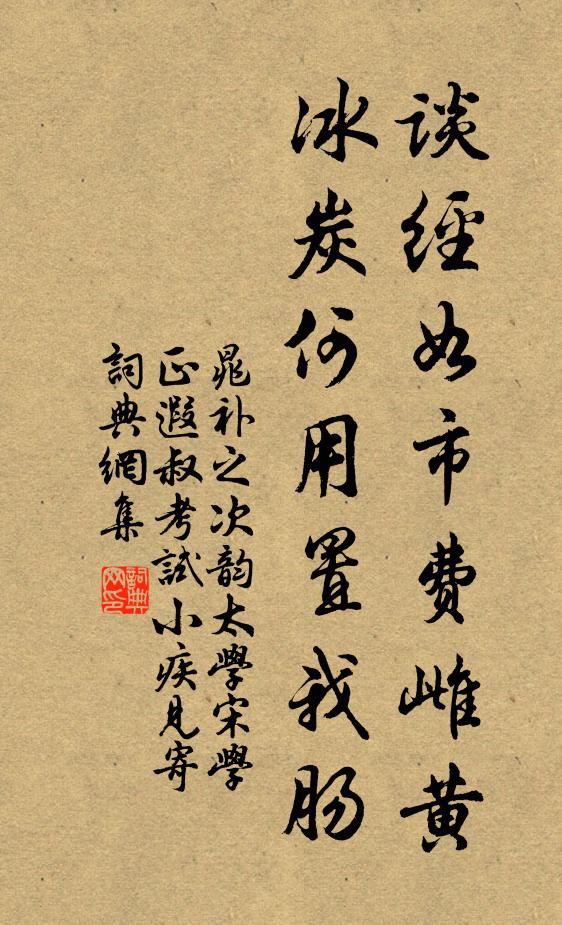 谈經如市費雌黄
冰炭何用置我肠
晁补之次韵太學宋學
正遐叔考試小疾見寄
詞典網集
詞典
网印